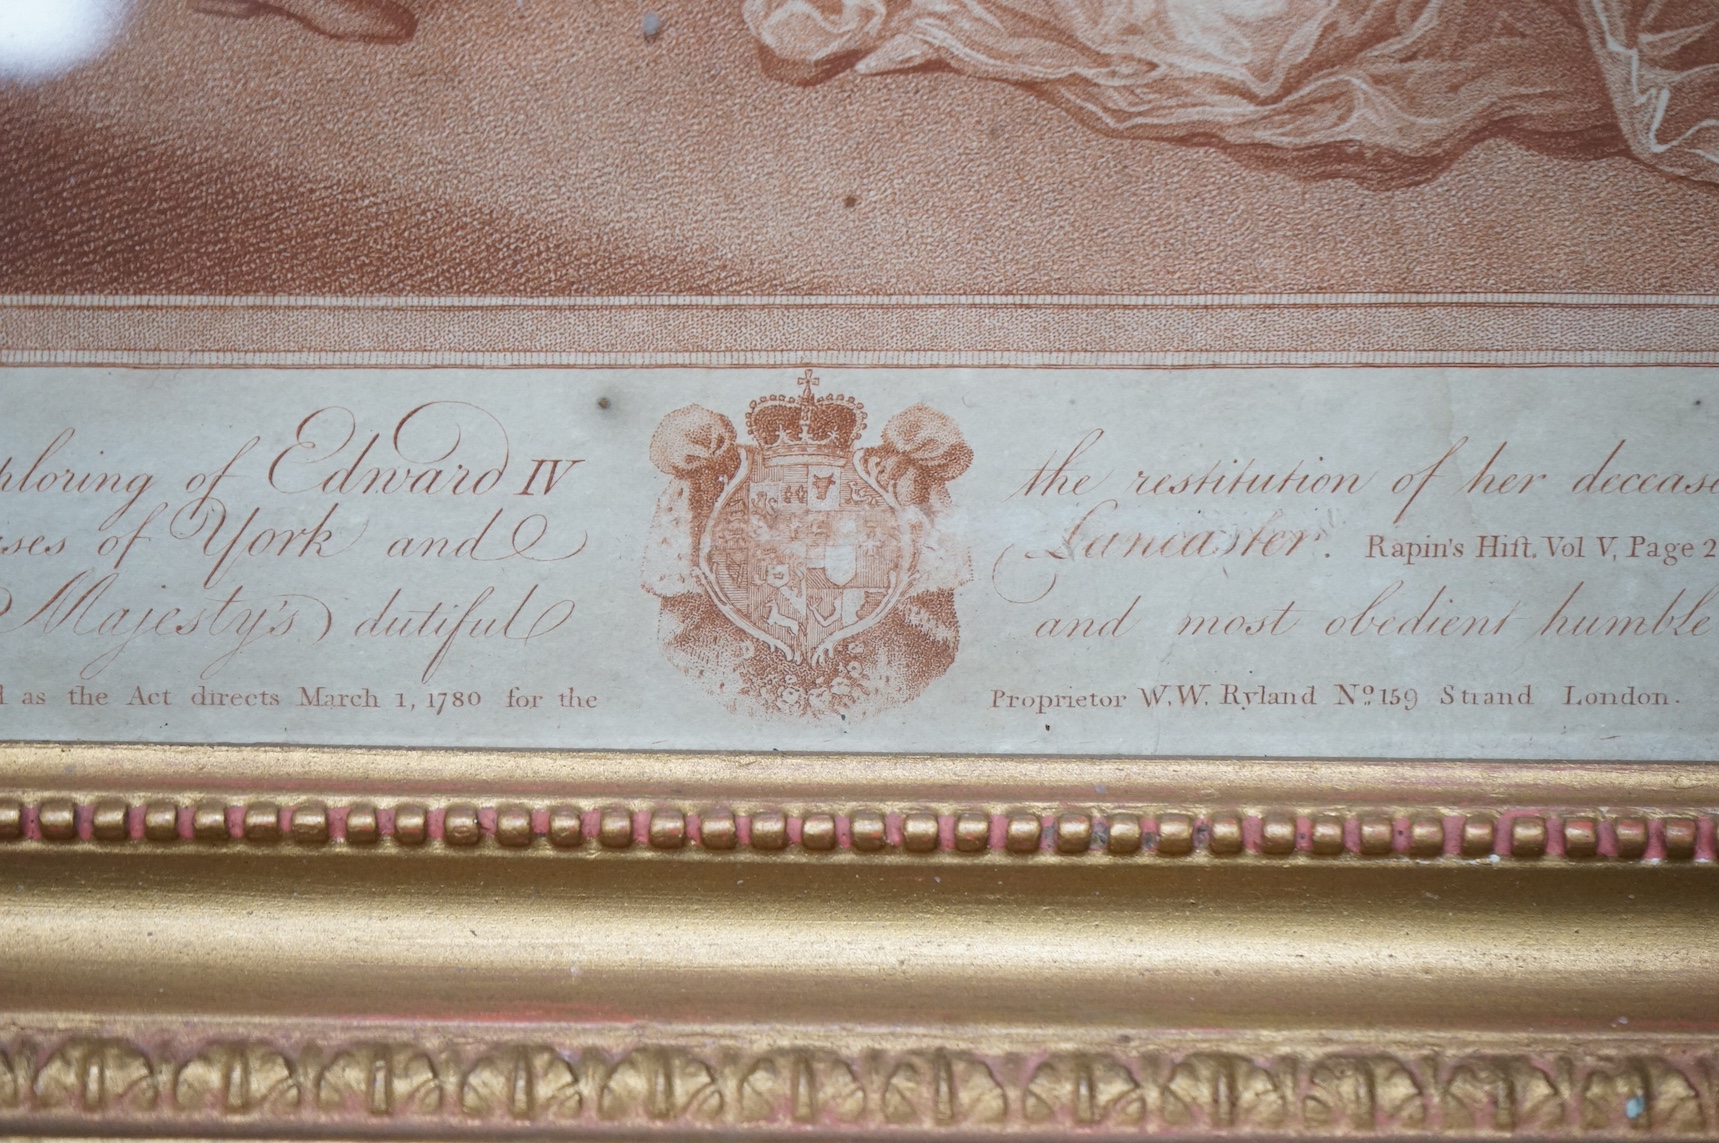 ploring of Edward IV the restitution of her deceas
ses of York and Lancaster. Rapin's Hiſt. Vol V, Page 2
Majesty's dutiful and most obedient humble
as the Act directs March 1, 1780 for the Proprietor W.W. Ryland Nº 159 Strand London.